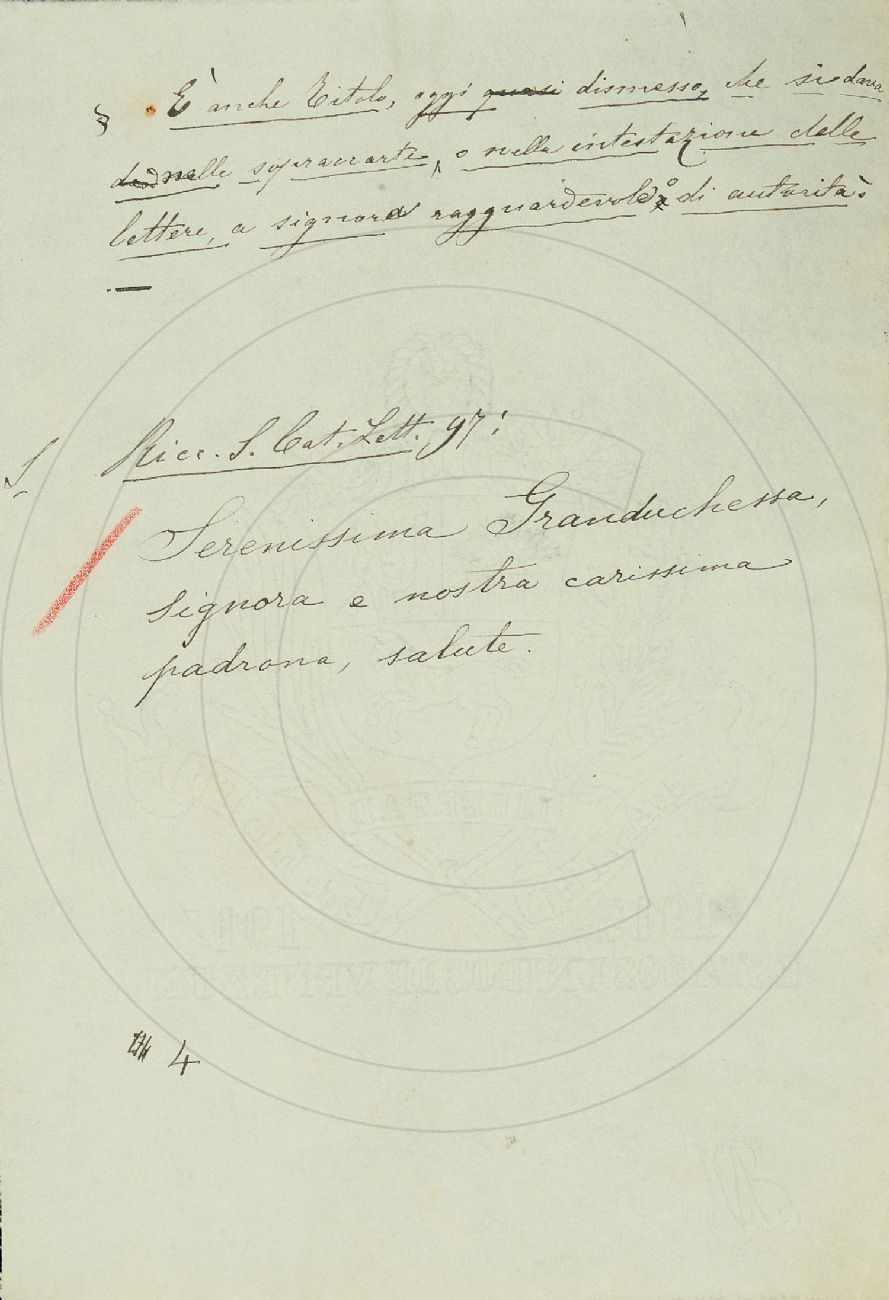 § È anche Titolo, oggi quasi dismesso, che si dava
nelle sopraccarte, o nella intestazione delle
lettere, a signora ragguardevole o di autorità.
S Ricc. S. Cat. Lett. 97:
Serenissima Granduchessa,
signora e nostra carissima
padrona, salute.
4